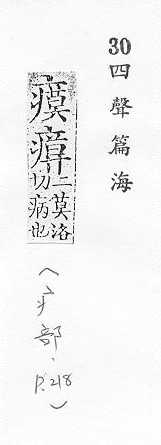 30 四聲篇海
瘼瘴二莫洛切病也
(疒部.
P.218)